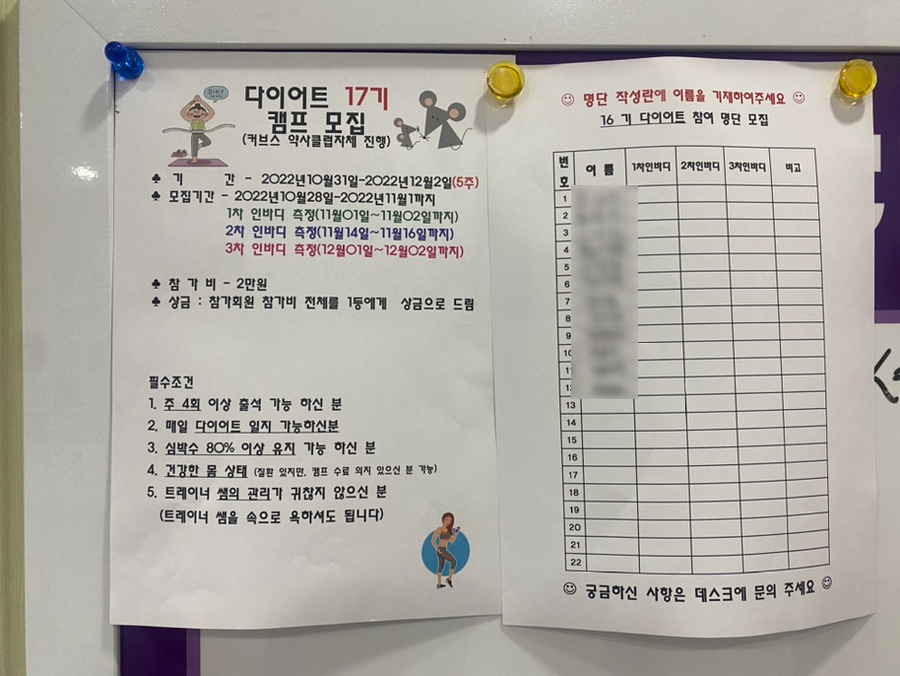 Diet
다이어트 17기
캠프 모집
(커브스 약사클럽자체 진행)
♣ 기 간 - 2022년10월31일-2022년12월2일(5주)
♣ 모집기간 - 2022년10월28일-2022년11월1까지
1차 인바디 측정(11월01일~11월02일까지)
2차 인바디 측정(11월14일~11월16일까지)
3차 인바디 측정(12월01일~12월02일까지)
♣ 참 가 비 - 2만원
♣ 상금 : 참가회원 참가비 전체를 1등에게 상금으로 드림
필수조건
1. 주 4회 이상 출석 가능 하신 분
2. 매일 다이어트 일지 가능하신분
3. 심박수 80% 이상 유지 가능 하신 분
4. 건강한 몸 상태 (질환 있지만, 캠프 수료 의지 있으신 분 가능)
5. 트레이너 쌤의 관리가 귀찮지 않으신 분
(트레이너 쌤을 속으로 욕하셔도 됩니다)
☺ 명단 작성란에 이름을 기재하여주세요 ☺
16 기 다이어트 참여 명단 모집
번호 이 름 1차인바디 2차인바디 3차인바디 비고
1
2
3
4
5
6
7
8
9
10
11
12
13
14
15
16
17
18
19
20
21
22
☺ 궁금하신 사항은 데스크에 문의 주세요 ☺